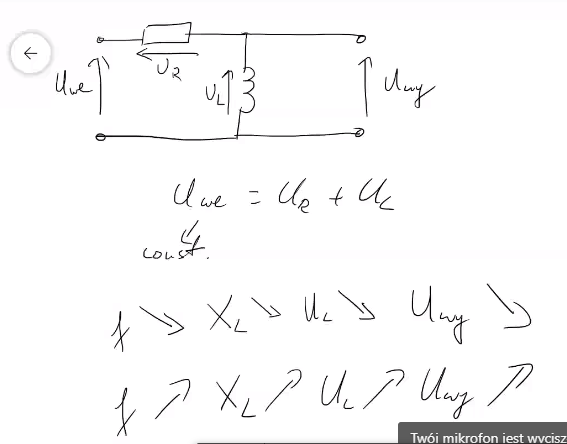 ←
Uwe UR UL Uwy
Uwe = UR + UL
const.
f ↘ XL ↘ UL ↘ Uwy ↘
f ↗ XL ↗ UL ↗ Uwy ↗
Twój mikrofon jest wycisz